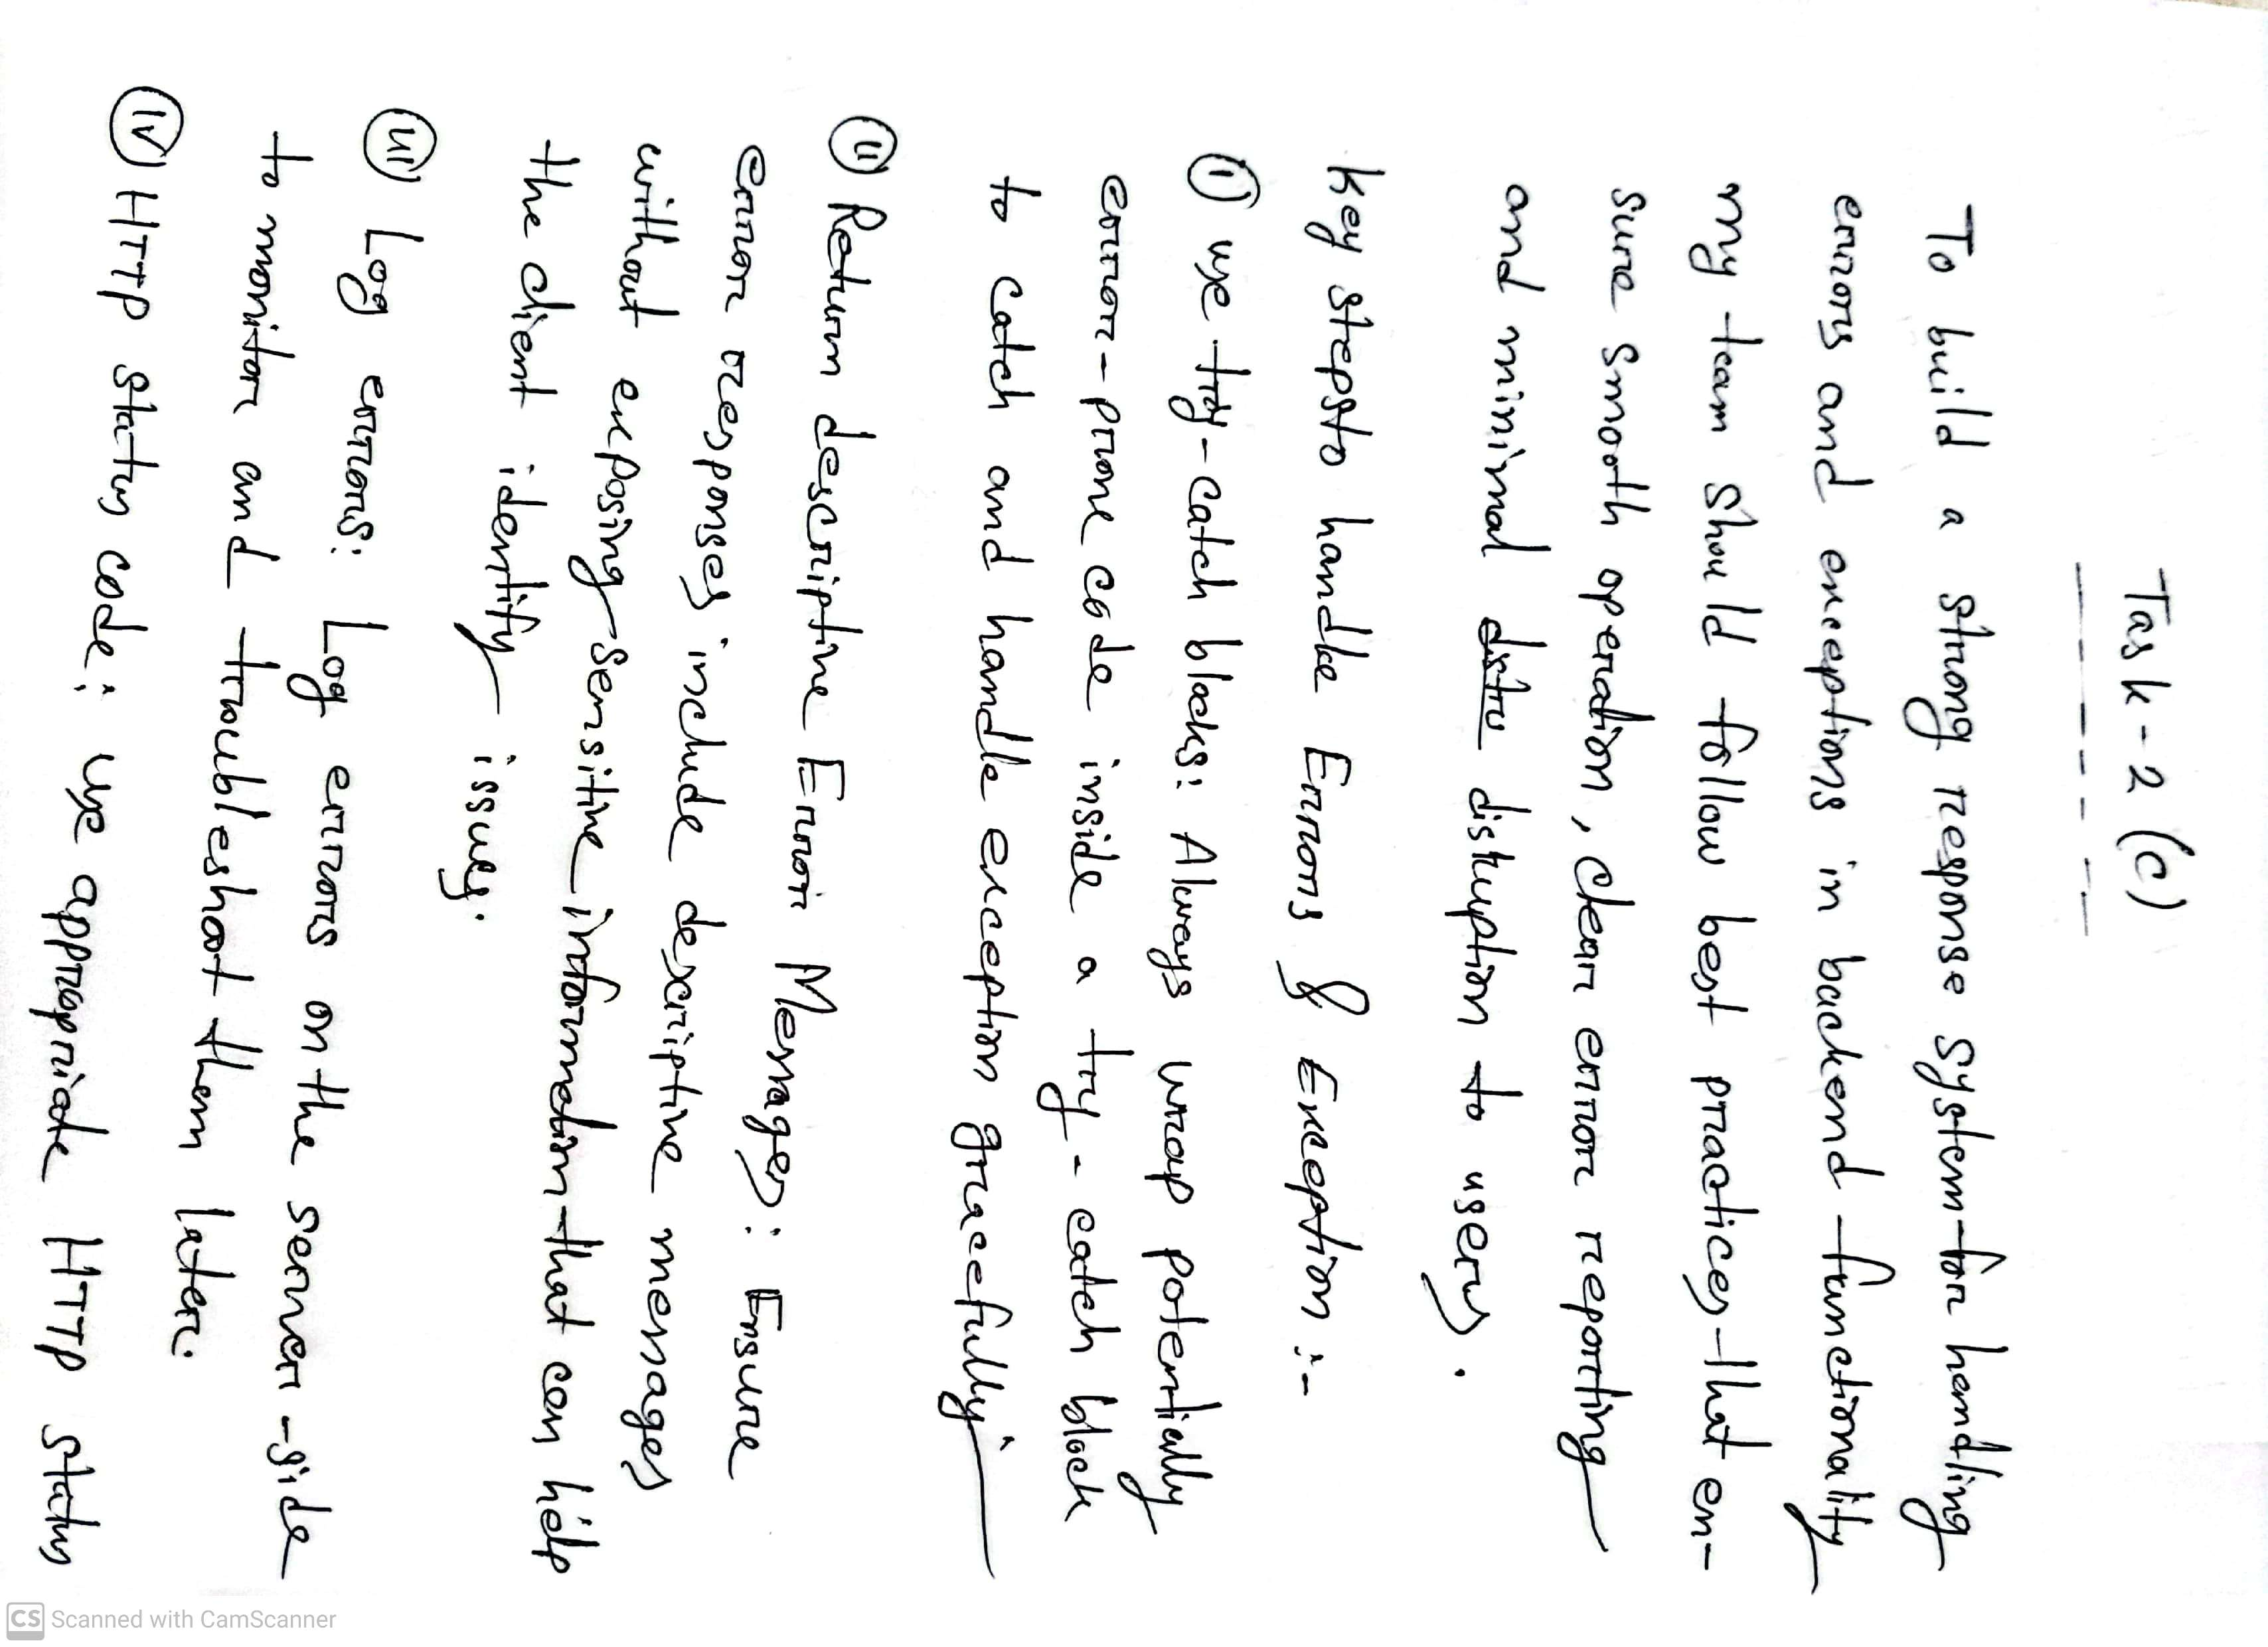 Task-2 (c)
To build a strong response system for handling
errors and exceptions in backend functionality
my team should follow best practices that en-
sure smooth operation, clear error reporting
and minimal distru disruption to users.
Key steps to handle Errors & Exception :-
(i) use try-catch blocks: Always wrap potentially
error-prone code inside a try-catch block
to catch and handle exception gracefully.
(ii) Return descriptive Error Messages: Ensure
error responses include descriptive messages
without exposing sensitive information that can help
the client identify issues.
(iii) Log errors: Log errors on the server-side
to monitor and troubleshoot them later.
(iv) HTTP status code: use appropriate HTTP status
CS Scanned with CamScanner